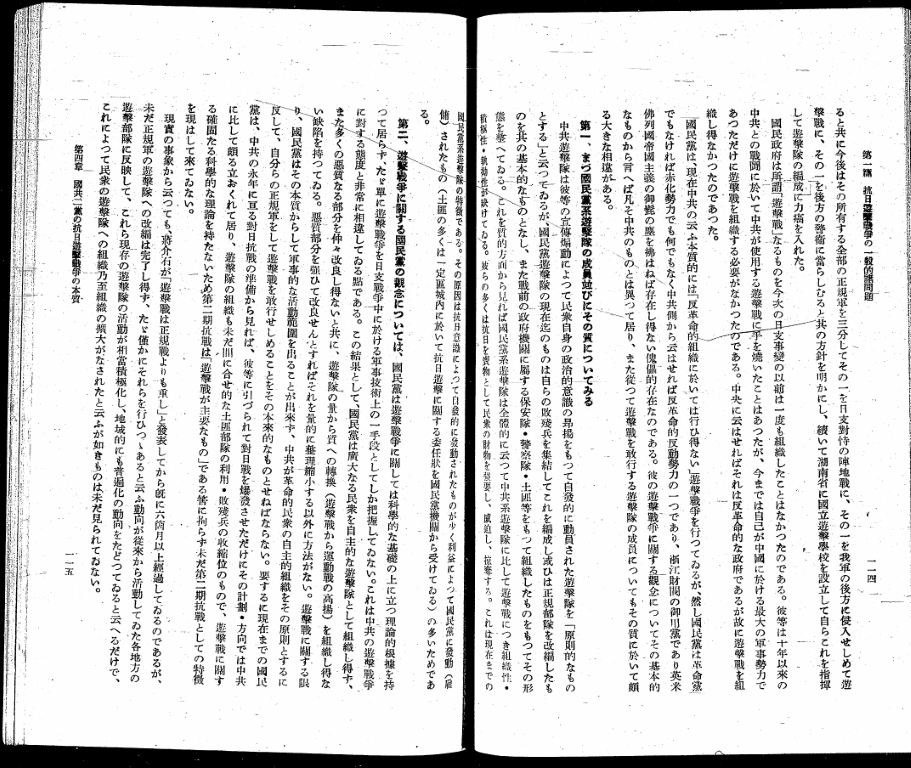 第二編　抗日遊擊戰爭の一般的諸問題
一一四
ると共に今後はその所有する全部の正規軍を三分してその一を日支對峙の陣地戰に、その一を我軍の後方に侵入せしめて遊
擊戰に、その一を後方の警衞に當らしむると共の方針を明かにし、續いて湖南省に國立遊擊學校を設立して自らこれを指揮
して遊擊隊の編成に力瘤を入れた。
國民政府は所謂「遊擊戰」なるものを今次の日支事變の以前は一度も組織したことはなかつたのである。彼等は十年以來の
中共との戰鬪に於いて中共が使用する遊擊戰に手を燒いたことはあつたが、今までは自己が中國に於ける最大の軍事勢力で
あつただけに遊擊戰を組織する必要がなかつたのである。中央に云はせればそれは反革命的な政府であるが故に遊擊戰を組
織し得なかつたのであつた。
國民黨は、現在中共の云ふ本質的には「反革命的組織に於いては行ひ得ない」遊擊戰爭を行つてゐるが、然し國民黨は革命黨
でもなければ赤化勢力でも何でもなく中共側から云はせれば反革命的反動勢力の一つであり、浙江財閥の御用黨であり英米
佛列國帝國主義の御髭の塵を拂はねば存在し得ない傀儡的存在なのである。彼の遊擊戰爭に關する觀念についてその基本的
なものから言へば凡そ中共のものとは異つて居り、また從つて遊擊戰を敢行する遊擊隊の成員についてもその質に於いて頗
る大きな相違がある。
第一、まづ國民黨系遊擊隊の成員並びにその質についてみる
中共遊擊隊は彼等の宣傳煽動によつて民衆自身の政治的意識の昂揚をもつて自發的に動員された遊擊隊を「原則的なもの
とする」と云つてゐるが、國民黨遊擊隊の現在迄のものは自らの敗殘兵を集結してこれを編成し或ひは正規部隊を改編したも
のを其の基本的なものとなし、また戰前の政府機關に屬する保安隊・警察隊・土匪等をもつて組織したものをもつてその形
態を整へてゐる。これを質的方面から見れば國民黨系遊擊隊は全體的に云つて中共系遊擊隊に比して遊擊戰につき組織性・
積極性・執拗性が缺けてゐる。彼らの多くは抗日を賣物として民衆の財物を强要し、
國民黨系遊擊隊の特徵である。その原因は抗日意識によつて自發的に發動されたものが少く利益によつて國民黨に發動（雇
傭）されたもの（土匪の多くは一定區域內に於いて抗日遊擊に關する委任狀を國民黨機關から受けてゐる）の多いためであ
る。
第二、遊擊戰爭に關する國民黨の觀念については、國民黨は遊擊戰爭に關しては科學的な基礎の上に立つ理論的根據を持
つて居らず、たゞ單に遊擊戰爭を日支戰爭中に於ける軍事技術上の一手段としてしか把握してゐない。これは中共の遊擊戰爭
に對する態度と非常に相違してゐる點である。この結果として、國民黨は廣大なる民衆を自主的な遊擊隊として組織し得ず、
また多くの惡質なる部分を仲々改良し得ないと共に、遊擊隊の量から質への轉換（遊擊戰から運動戰の高揚）を組織し得な
い缺陷を持つてゐる。惡質部分を强ひて改良せんとすればそれを量的に整理縮小する以外に方法がない。遊擊戰に關する限
り、國民黨はその本質からして軍事的な活動範圍を出ることが出來ず、中共が革命的民衆の自主的組織をその原則とするに
反して、自分らの正規軍をして遊擊戰を敢行せしめることをその本來的なものとせねばならない。要するに現在までの國民
黨は、中共の永年に亙る對日抗戰の準備から見れば、彼等に引づられて對日戰を爆發させただけにその計劃・方向では中共
に比して頗る立おくれて居り、遊擊隊の組織も未だ間に合せ的な土匪部隊の利用・敗殘兵の收縮位のもので、遊擊戰に關す
る確固たる科學的な理論を持たないため第二期抗戰は「遊擊戰が主要なもの」である筈に拘らず未だ第二期抗戰としての特徵
を現はして來てゐない。
現實の事象から云つても、蔣介石が「遊擊戰は正規戰よりも重し」と發表してから旣に六箇月以上經過してゐるのであるが、
未だ正規軍の遊擊隊への改編は完了し得ず、たゞ僅かにそれらを行ひつゝあると云ふ動向が從來から活動してゐた各地方の
遊擊部隊に反映して、これら現存の遊擊隊の活動が相當積極化し、地域的にも普遍化の動向をたどつてゐると云へるだけで、
これによつて民衆の遊擊隊への組織乃至組織の擴大がなされたと云ふが如きものは未だ見られてゐない。
第四章　國共二黨の抗日遊擊戰爭の本質
一一五